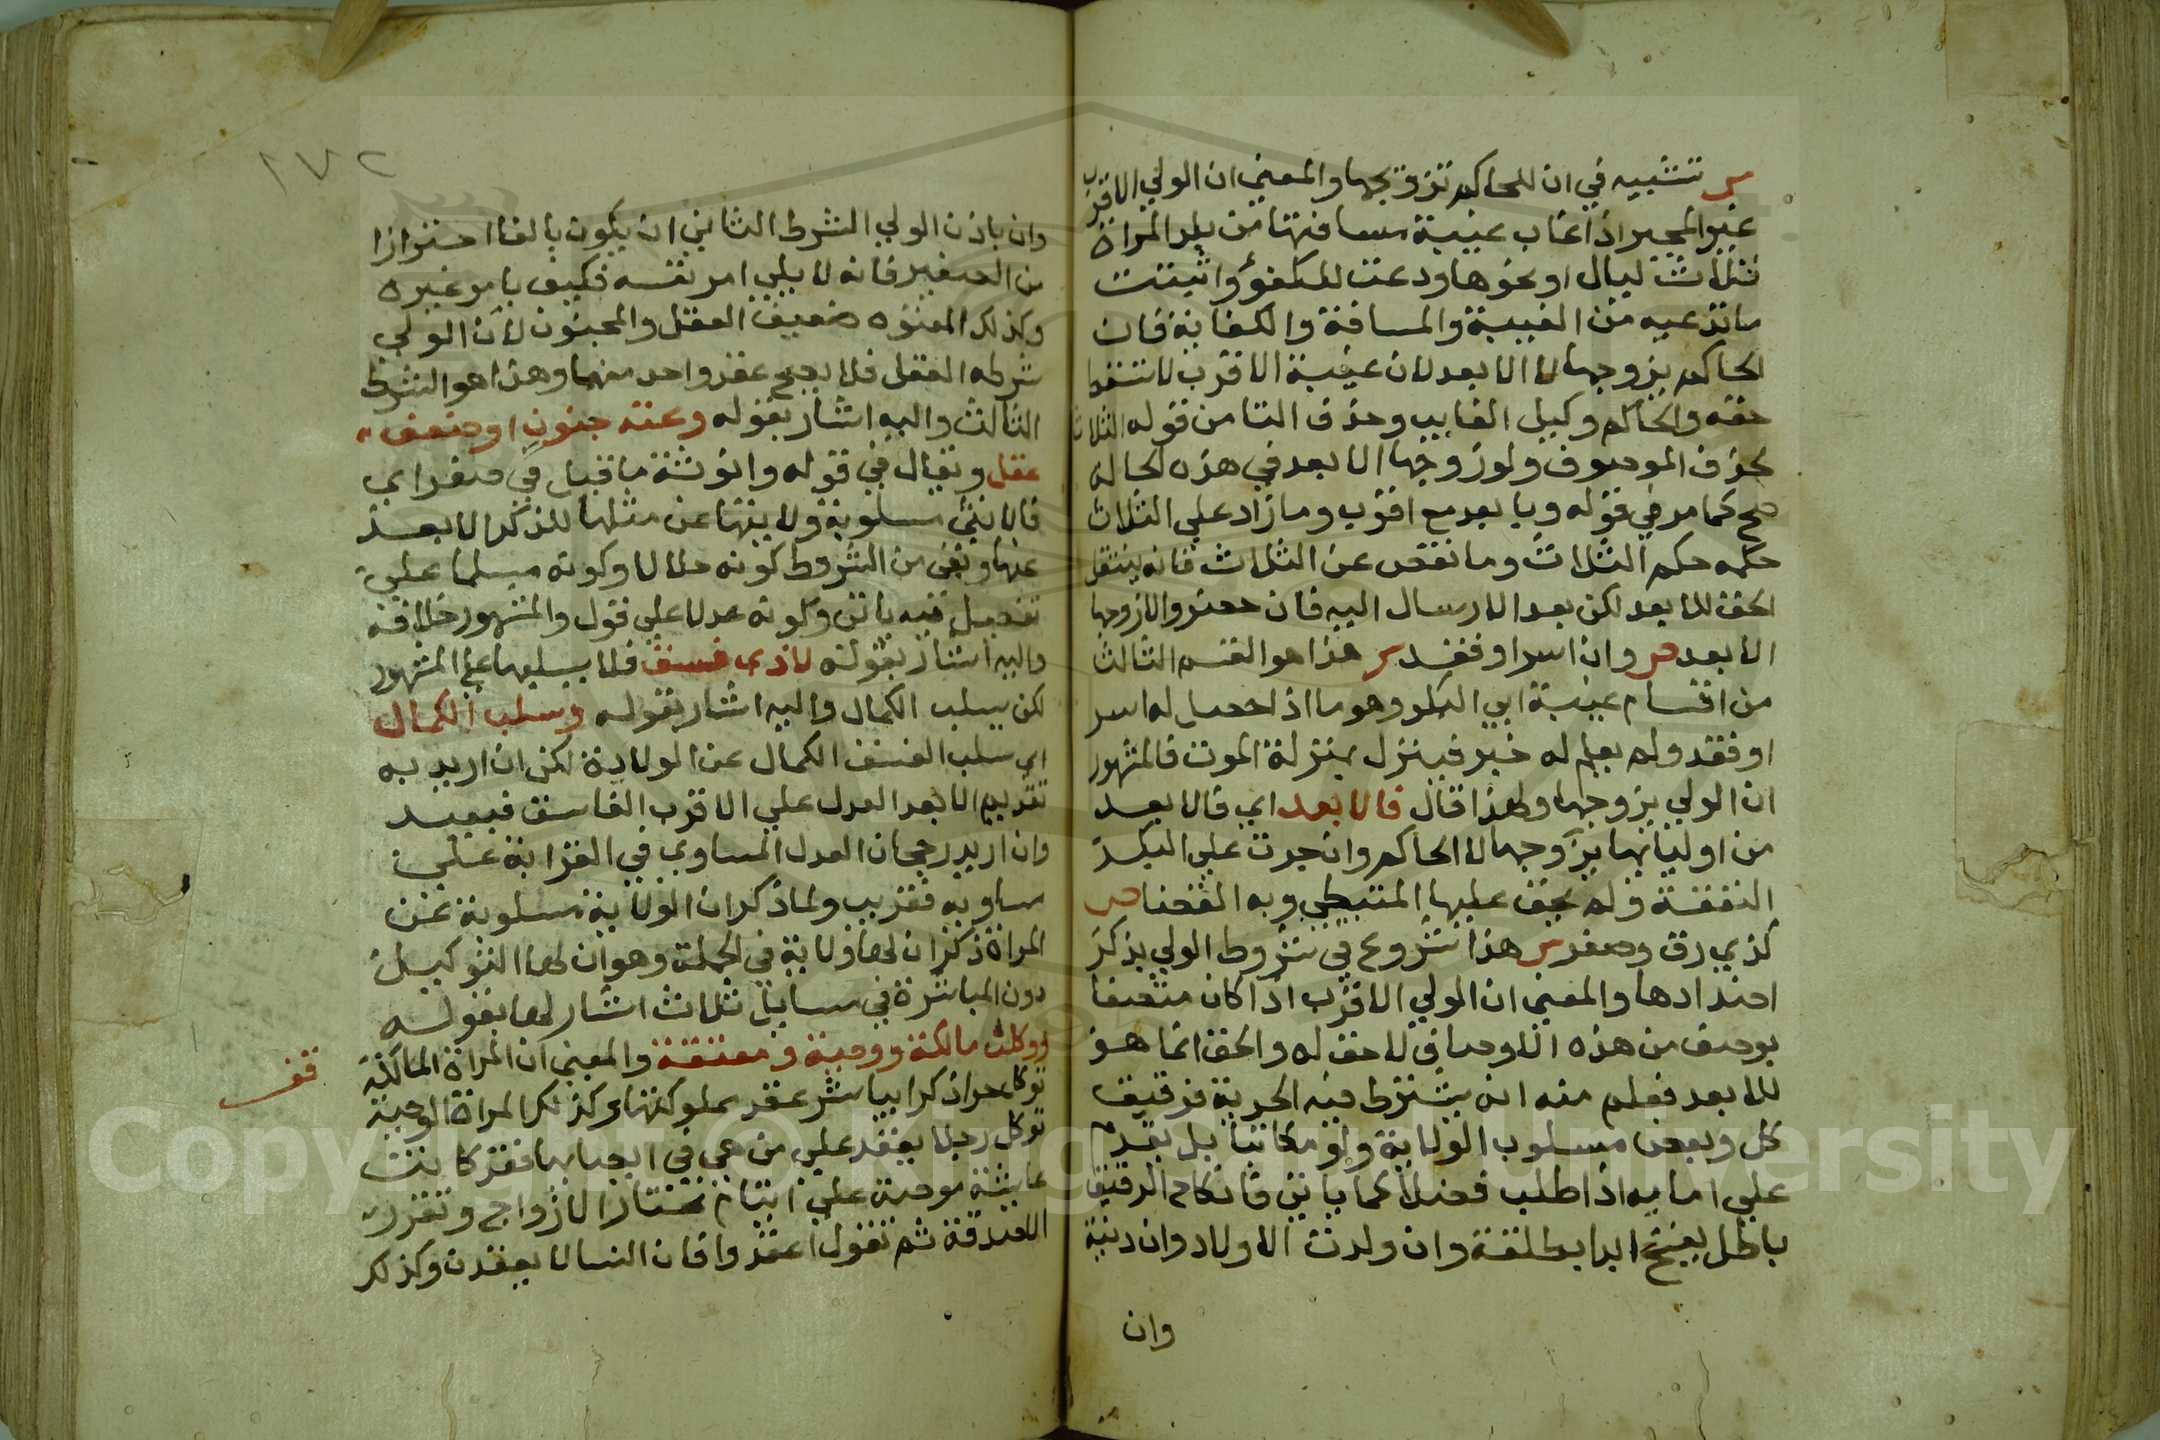 ش تشبيه في ان للحاكم تزويجها والمعني ان الولي الاقرب
غير المجبر اذا غاب غيبة مسافتها من بلد المراة
ثلاث ليال او نحوها ودعت للكفؤ واثبتت
ما تدعيه من الغيبة والمسافة والكفاية فان
الحاكم يزوجها لا الابعد لان غيبة الاقرب لا تسقط
حقه والحاكم وكيل الغايب وحذف التا من قوله الثلاث
بحذف الموصوف ولو زوجها الابعد في هذه الحالة
صح كما مر في قوله وبابعد مع اقرب وما زاد علي الثلاث
حكمه حكم الثلاث وما نقص عن الثلاث فانه ينتقل
الحق للابعد لكن بعد الارسال اليه فان حضر والا زوجها
الابعد ص وان اسر او فقد ش هذا هو القسم الثالث
من اقسام غيبة ابي البكر وهو ما اذا حصل له اسر
او فقد ولم يعلم له خبر فينزل بمنزلة الموت فالمشهور
ان الولي يزوجها ولهذا قال فالابعد اي فالابعد
من اوليائها يزوجها لا الحاكم وان جرت علي البكر
النفقة ولم يخف عليها المتيطي وبه القضا ص
كذي رق وصغر ش هذا شروع في شروط الولي بذكر
اضدادها والمعني ان الولي الاقرب اذا كان متصفا
بوصف من هذه الاوصاف لا حق له والحق انما هو
للابعد فعلم منه انه يشترط فيه الحرية فرقيق
كل وبعض مسلوب الولاية ولو مكاتبا بل يقدم
علي امايه اذا طلب فضلا كما ياتي فانكاح الرقيق
باطل يفسخ ابدا بطلقة وان ولدت الاولاد وان دنية
وان
١٧٢
وان باذن الولي الشرط الثاني ان يكون بالغا احترازا
من الصغير فانه لا يلي امر نفسه فكيف بامر غيره
وكذلك المعتوه ضعيف العقل والمجنون لان الولي
شرطه العقل فلا يصح عقد واحد منهما وهذا هو الشرط
الثالث واليه اشار بقوله وعته جنون او ضعف
عقل ويقال في قوله وانوثة ما قيل في صغر اي
فالانثي مسلوبة ولايتها عن مثلها للذكر الابعد
عنها وبقي من الشروط كونه حلالا وكونه مسلما علي
تفصيل فيه ياتي وكونه عدلا علي قول والمشهور خلافه
واليه اشار بقوله لا ذي فسق فلا يسلبها علي المشهور
لكن يسلب الكمال واليه اشار بقوله وسلب الكمال
اي سلب الفسق الكمال عن الولاية لكن ان اريد به
تقديم الابعد العدل علي الاقرب الفاسق فبعيد
وان اريد رجحان العدل المساوي في القرابة علي
مساويه فقريب ولما ذكر ان الولاية مسلوبة عن
المراة ذكر ان لها ولاية في الجملة وهو ان لها التوكيل
دون المباشرة في مسايل ثلاث اشار لها بقوله
ووكلت مالكة ووصية ومعتقة والمعني ان المراة المالكة
توكل حرا ذكرا يباشر عقد مملوكتها وكذلك المراة الوصية
توكل رجلا يعقد علي من هي في ايصايها فقد كانت
عايشة موصية علي ايتام تختار الازواج وتقرر
الصدقة ثم تقول اعقدوا فان النسا لا يعقدن وكذلك
قف
Copyright © King Saud University